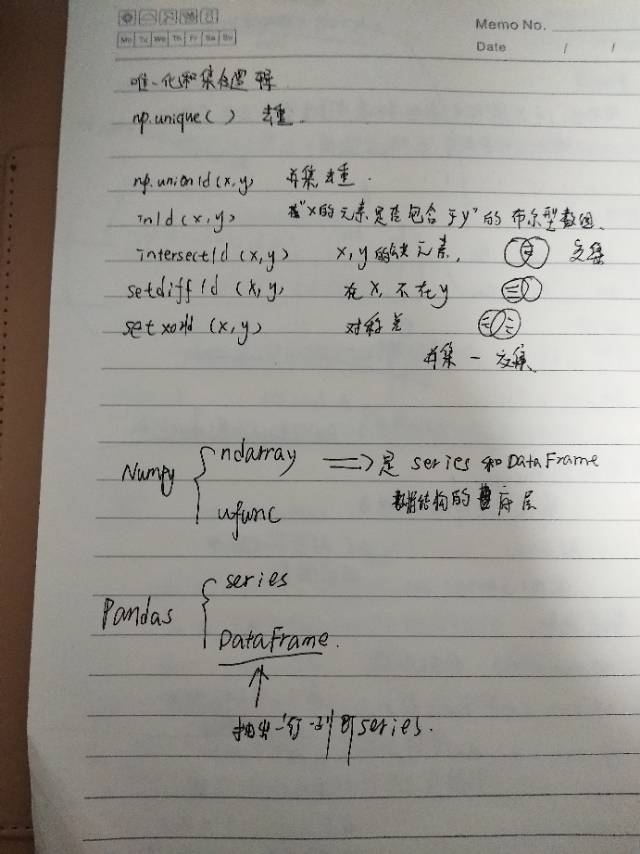 Memo No.
Mo Tu We Th Fr Sa Su
Date / /
唯一化和集合逻辑
np.unique( ) 去重.
np.union1d(x,y) 并集去重.
in1d(x,y) "x的元素是否包含于y"的布尔型数组.
intersect1d(x,y) x,y的公共元素. 交集
setdiff1d(x,y) 在x,不在y
setxor1d(x,y) 对称差
并集-交集
Numpy
ndarray => 是series和DataFrame
数据结构的底层
ufunc
Pandas
series
DataFrame.
抽出一行一列 series.